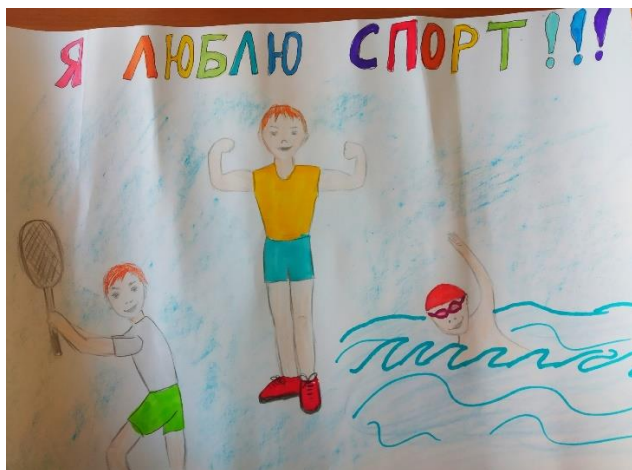 Я ЛЮБЛЮ СПОРТ!!!